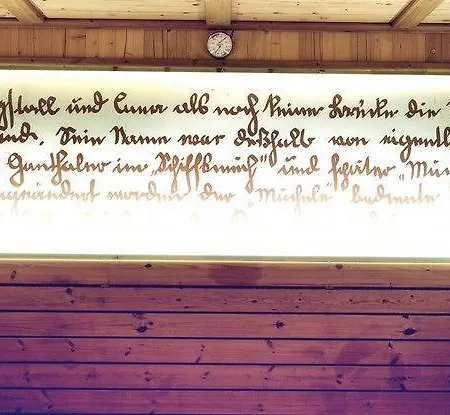 gstall und Lana als noch keine Brücke die
and. Sein Name war deßhalb von eigentl
Ganthaler im „Schiffsmuch" und später „Muc
geändert worden der „Muchele" bediente